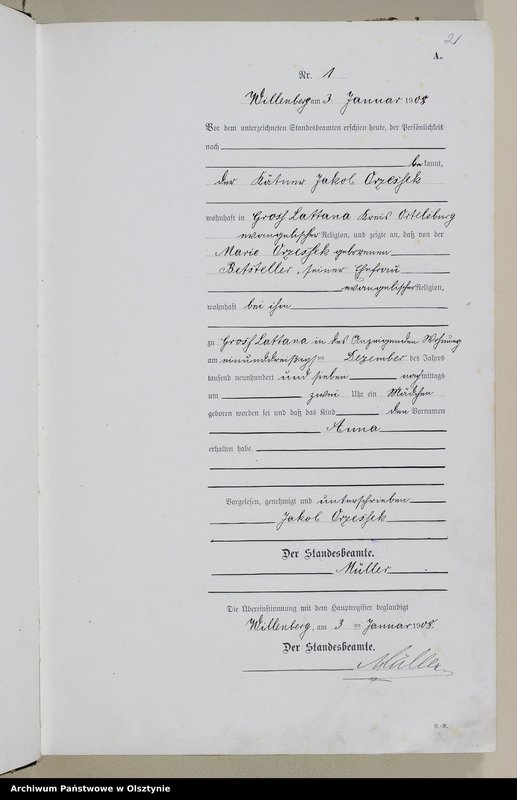 21
A.
Nr. 1
Willenberg am 3 Januar 1908
Vor dem unterzeichneten Standesbeamten erschien heute, der Persönlichkeit
nach
bekannt,
der Kätner Jakob Orzessek
wohnhaft in Gross Lattana Kreis Ortelsburg
evangelischer Religion, und zeigte an, daß von der
Marie Orzessek geborenen
Betsteller, seiner Ehefrau
evangelischer Religion,
wohnhaft bei ihm
zu Gross Lattana in des Anzeigenden Wohnung
am einunddreißigsten Dezember des Jahres
tausend neunhundert und sieben nachmittags
um zwei Uhr ein Mädchen
geboren worden sei und daß das Kind den Vornamen
Anna
erhalten habe.
Vorgelesen, genehmigt und unterschrieben
Jakob Orzessek
Der Standesbeamte.
Müller
Die Übereinstimmung mit dem Hauptregister beglaubigt
Willenberg, am 3 ten Januar 1908.
Der Standesbeamte.
Müller
B.-R.
Archiwum Państwowe w Olsztynie